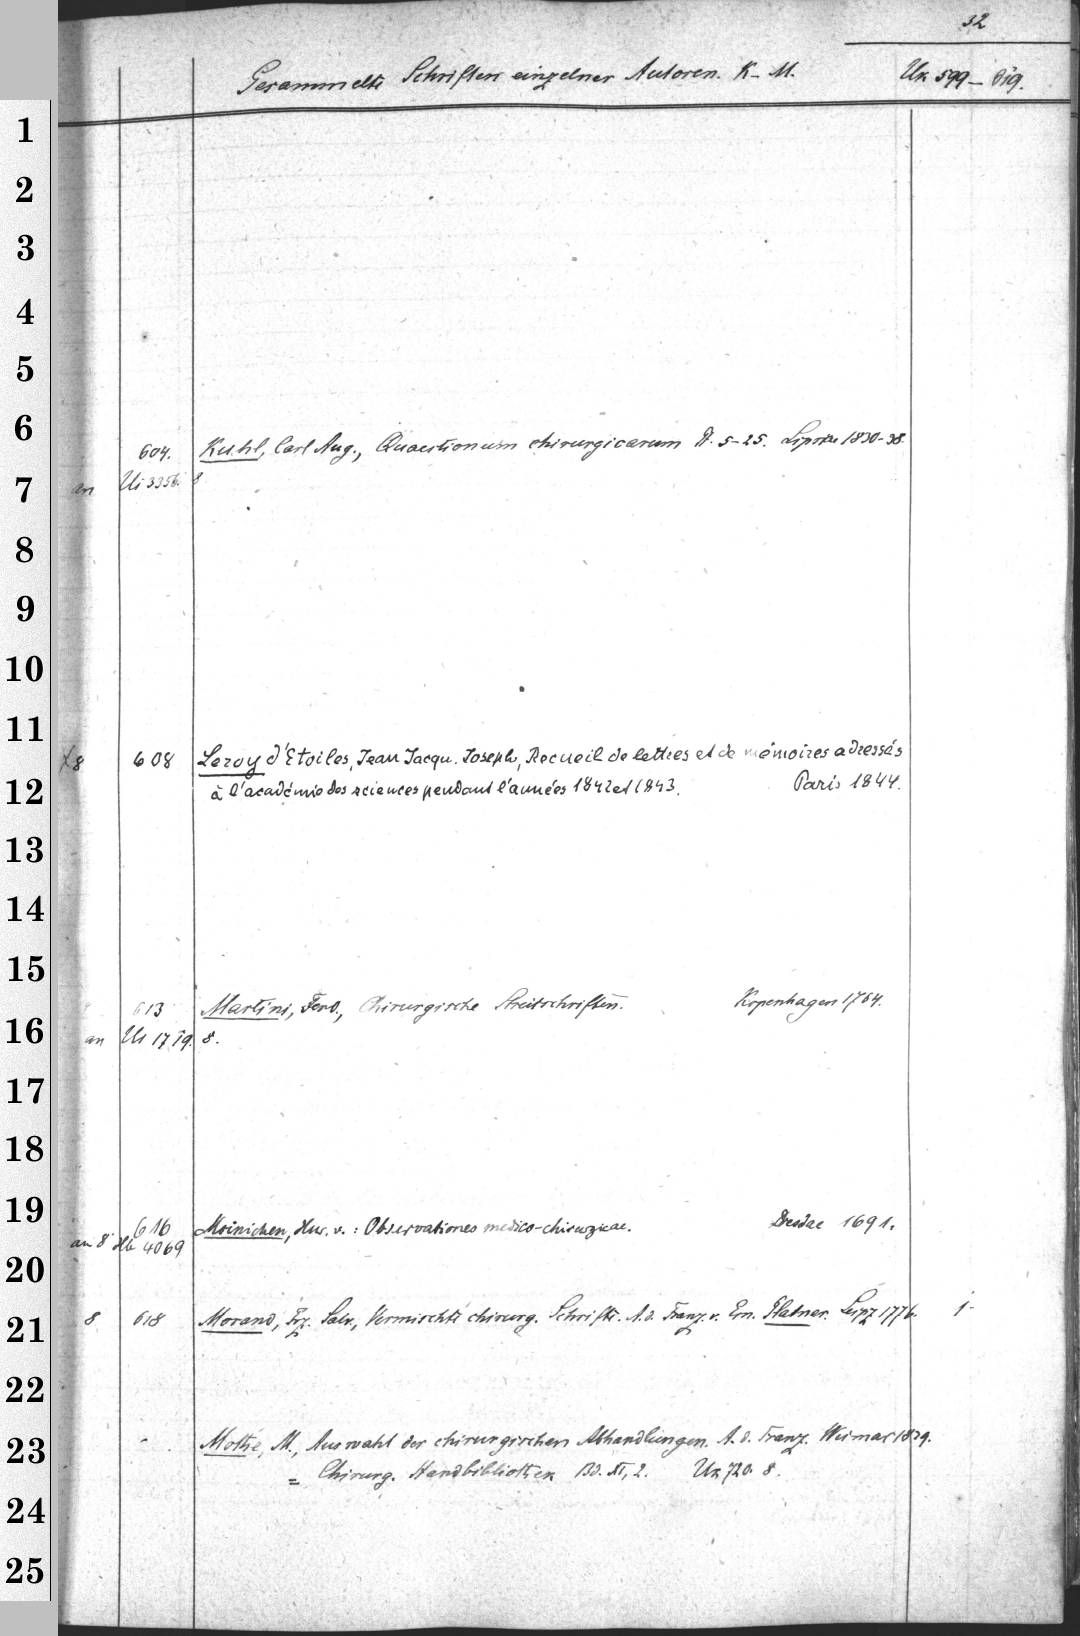 32
Gesammelte Schriften einzelner Autoren. K-M.
Uk 599- 619.
1
2
3
4
5
6
604. Kuhl, Carl Aug., Quaestionum chirurgicarum P. 5-25. Lipsiae 1830-38.
7
an Ui 3356. 8
8
9
10
11
8 608 Leroy d'Etoiles, Jean Jacqu. Joseph, Recueil de lettres et de mémoires adressés
12
à l'académie des sciences pendant l'années 1842 et 1843. Paris 1844.
13
14
15
613 Martini, Ferd., Chirurgische Streitschriften. Kopenhagen 1764.
16
an Us 1719. 8.
17
18
19
616 Moinichen, Hnr. v.: Observationes medico-chirurgicae. Dresdae 1691.
an 8° 4069
20
21
8 618 Morand, Frz. Salv., Vermischte chirurg. Schrifte. A. d. Franz. v. Ern. Platner. Leipz 1776. 1-
22
23
Mothe, M., Auswahl der chirurgischen Abhandlungen. A. d. Franz. Weimar 1829.
= Chirurg. Handbibliothek Bd. XI, 2. Uk 720. 8.
24
25